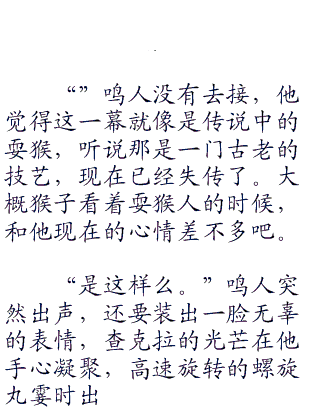 “”鸣人没有去接，他
觉得这一幕就像是传说中的
耍猴，听说那是一门古老的
技艺，现在已经失传了。大
概猴子看着耍猴人的时候，
和他现在的心情差不多吧。
“是这样么。”鸣人突
然出声，还要装出一脸无辜
的表情，查克拉的光芒在他
手心凝聚，高速旋转的螺旋
丸霎时出